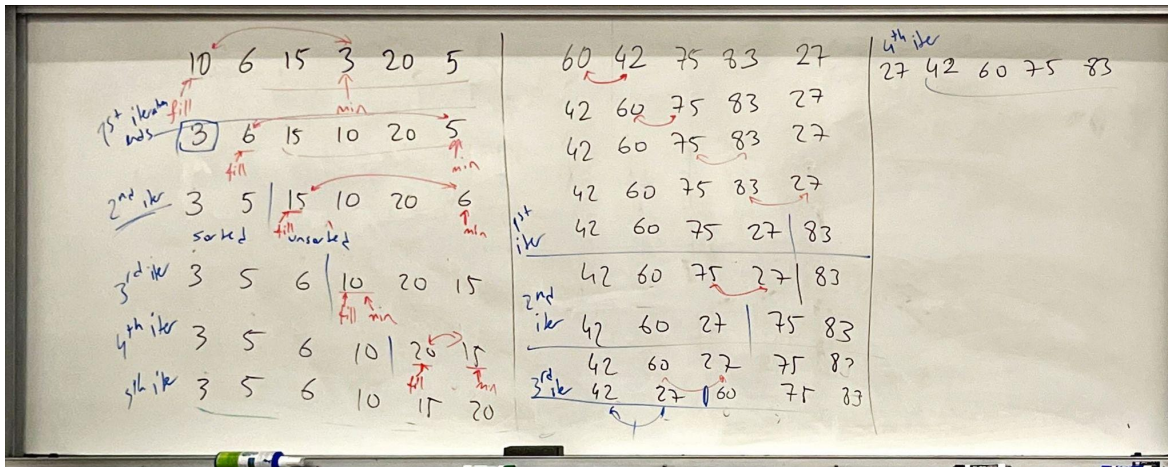 10 6 15 3 20 5
fill min
1st iteration ends 3 6 15 10 20 5
fill min
2nd iter 3 5 | 15 10 20 6
sorted fill unsorted min
3rd iter 3 5 6 | 10 20 15
fill min
4th iter 3 5 6 10 | 20 15
fill min
5th iter 3 5 6 10 15 20
60 42 75 83 27
42 60 75 83 27
42 60 75 83 27
42 60 75 83 27
1st iter 42 60 75 27 | 83
42 60 75 27 | 83
2nd iter 42 60 27 | 75 83
42 60 27 75 83
3rd iter 42 27 | 60 75 83
4th iter
27 42 60 75 83